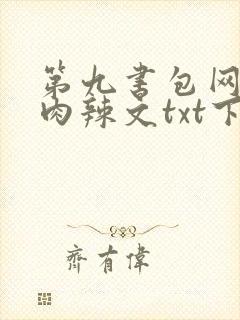 第九书包网
肉辣文txt下
齐有偉